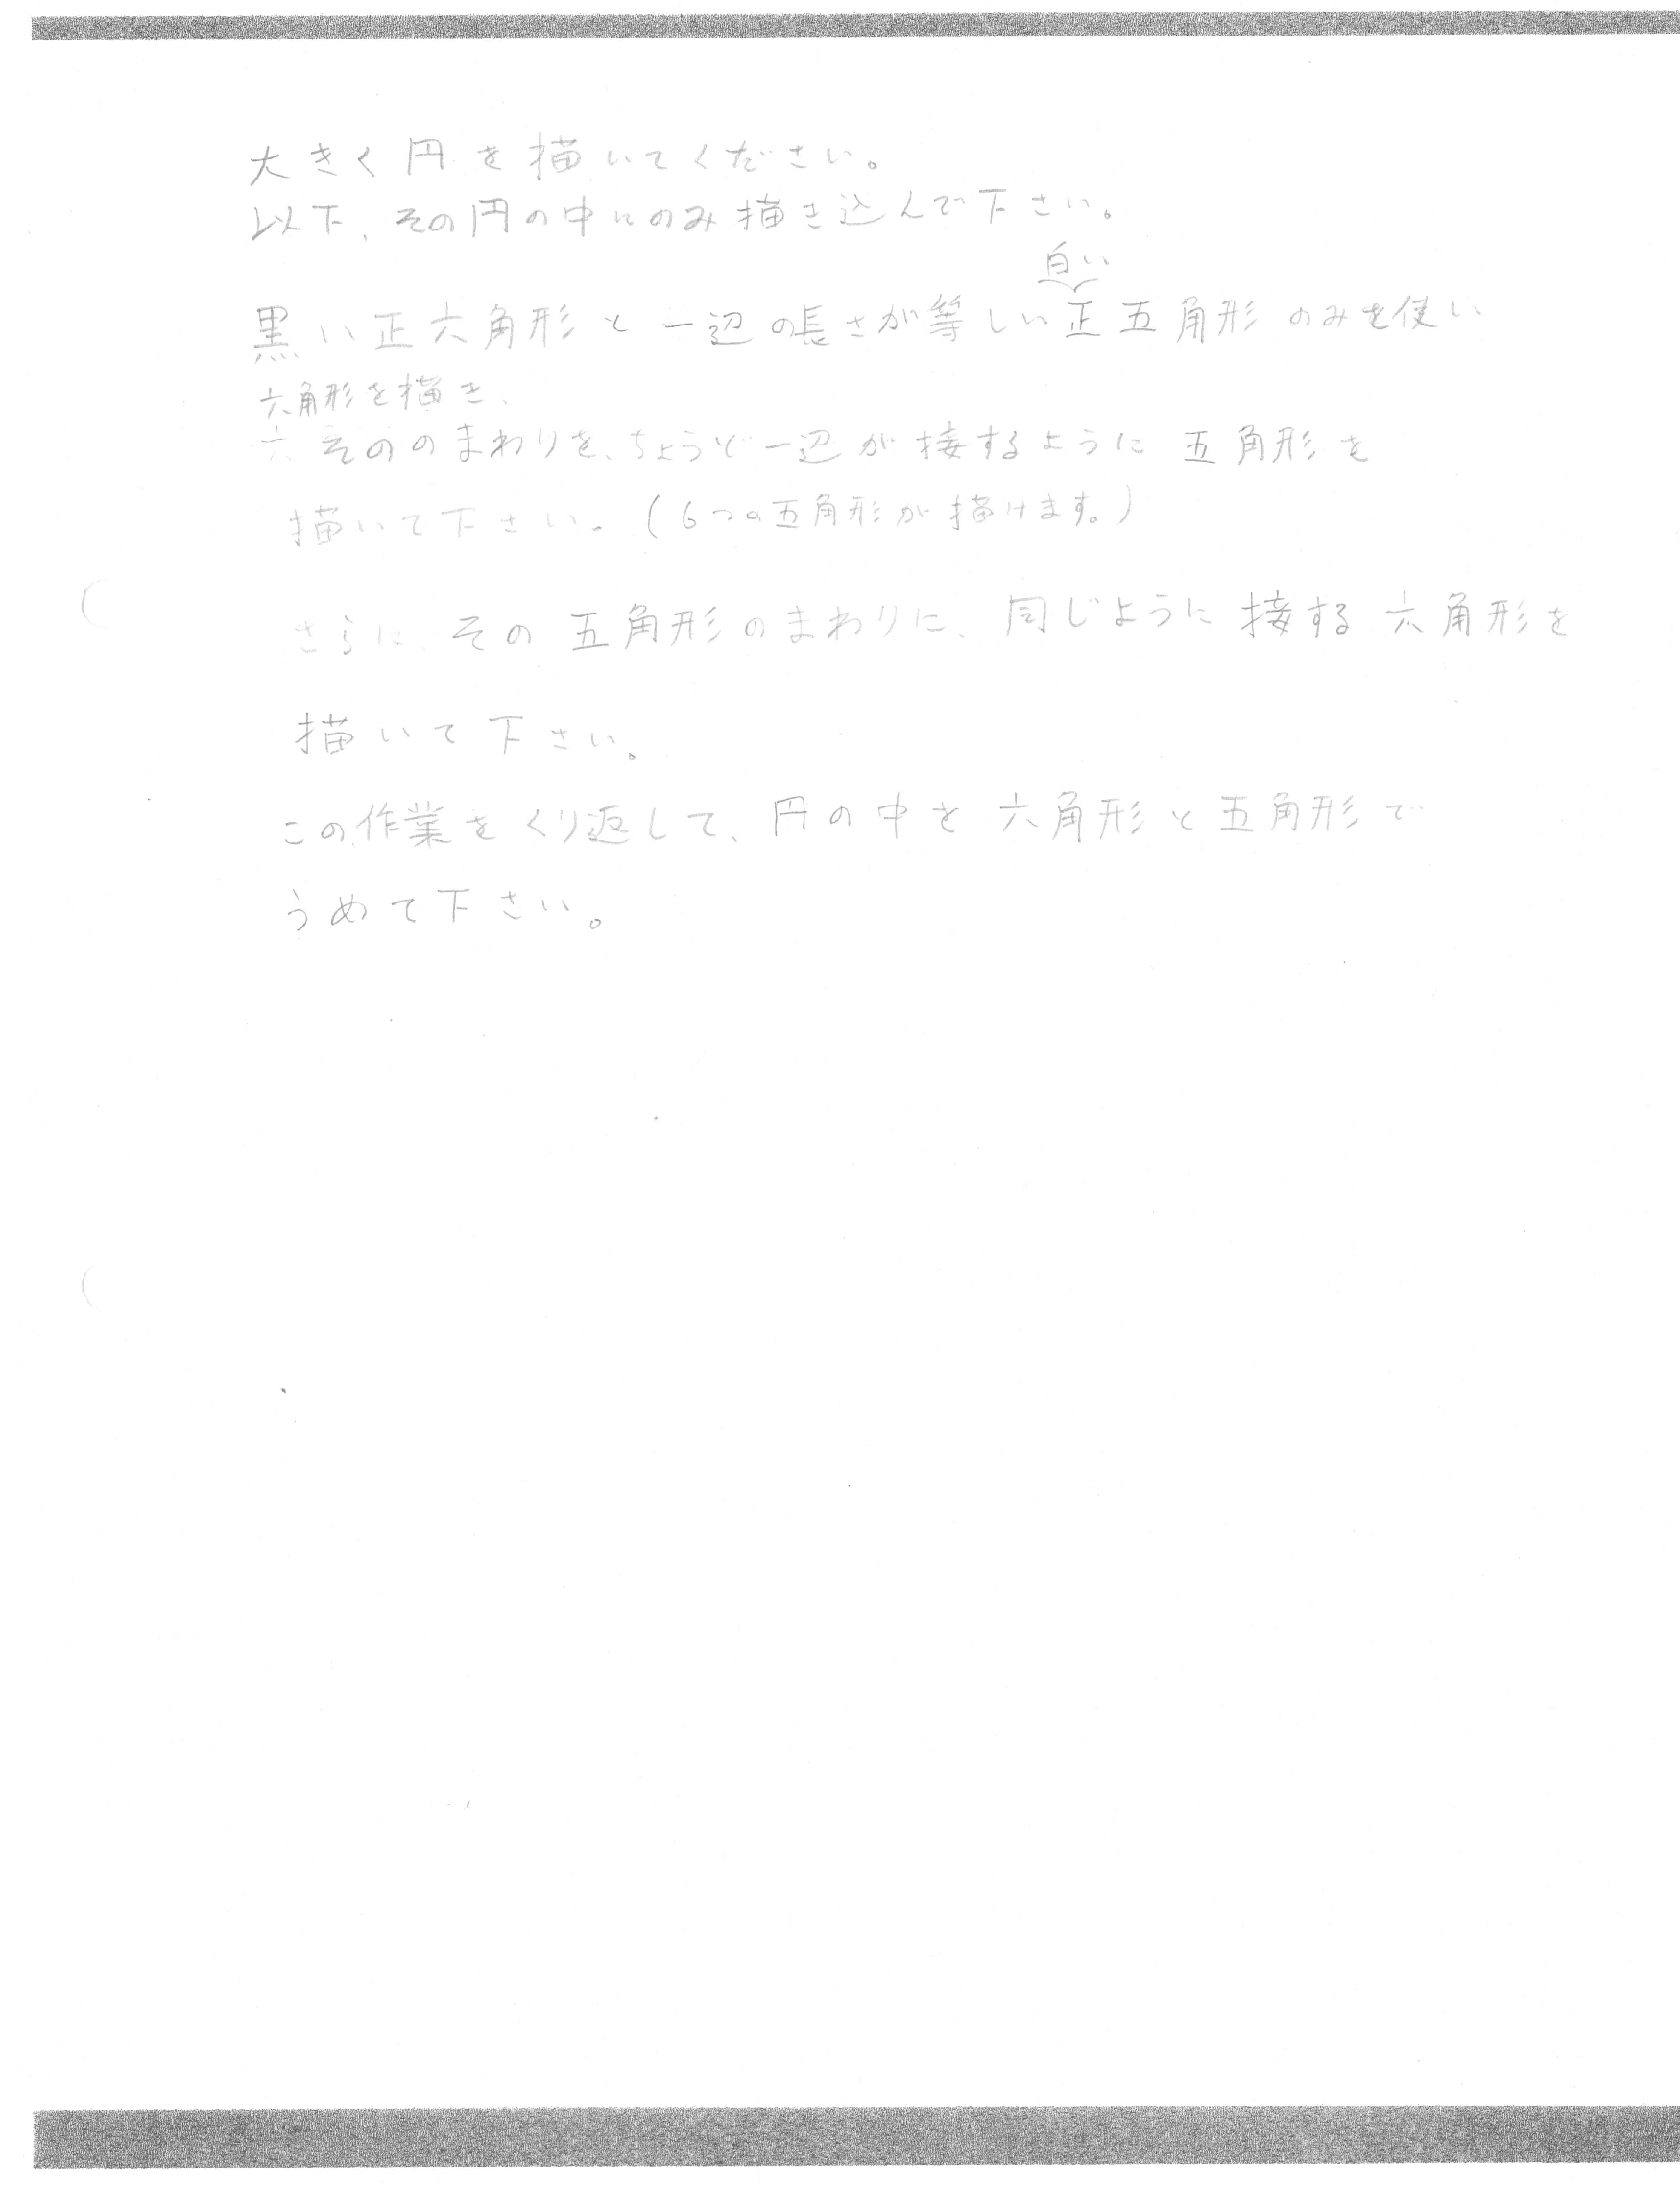 大きく円を描いてください。
以下、その円の中にのみ描き込んで下さい。
白い
黒い正六角形と一辺の長さが等しい正五角形のみを使い
六角形を描き、
六 そののまわりを、ちょうど一辺が接するように五角形を
描いて下さい。(6つの五角形が描けます。)
さらに、その五角形のまわりに、同じように接する六角形を
描いて下さい。
この作業をくり返して、円の中を六角形と五角形で
うめて下さい。